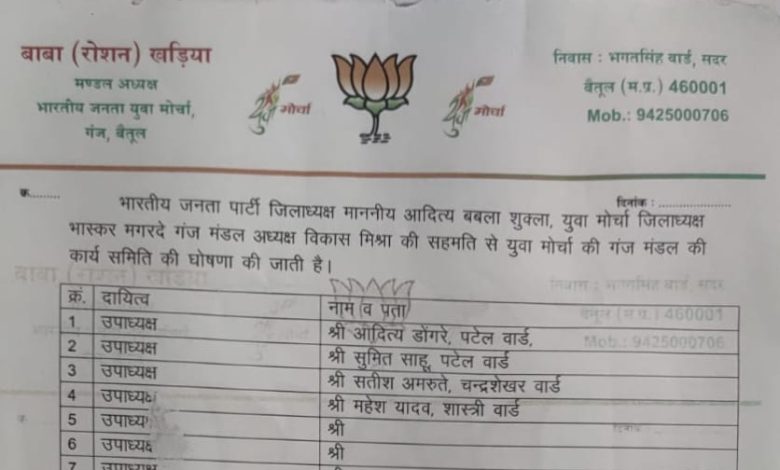 बाबा (रोशन) खड़िया
मण्डल अध्यक्ष
भारतीय जनता युवा मोर्चा,
गंज, बैतूल
युवा मोर्चा
युवा मोर्चा
निवास : भगतसिंह वार्ड, सदर
बैतूल (म.प्र.) 460001
Mob.: 9425000706
क्र.........
दिनांक : ....................
भारतीय जनता पार्टी जिलाध्यक्ष माननीय आदित्य बबला शुक्ला, युवा मोर्चा जिलाध्यक्ष
भास्कर मगरदे गंज मंडल अध्यक्ष विकास मिश्रा की सहमति से युवा मोर्चा की गंज मंडल की
कार्य समिति की घोषणा की जाती है।
क्रं. दायित्व नाम व पता
1 उपाध्यक्ष श्री आदित्य डोंगरे, पटेल वार्ड,
2 उपाध्यक्ष श्री सुमित साहू, पटेल वार्ड
3 उपाध्यक्ष श्री सतीश अमरुते, चन्द्रशेखर वार्ड
4 उपाध्यक्ष श्री महेश यादव, शास्त्री वार्ड
5 उपाध्य श्री
6 उपाध्यक्ष श्री
7 उपाध्यक्ष